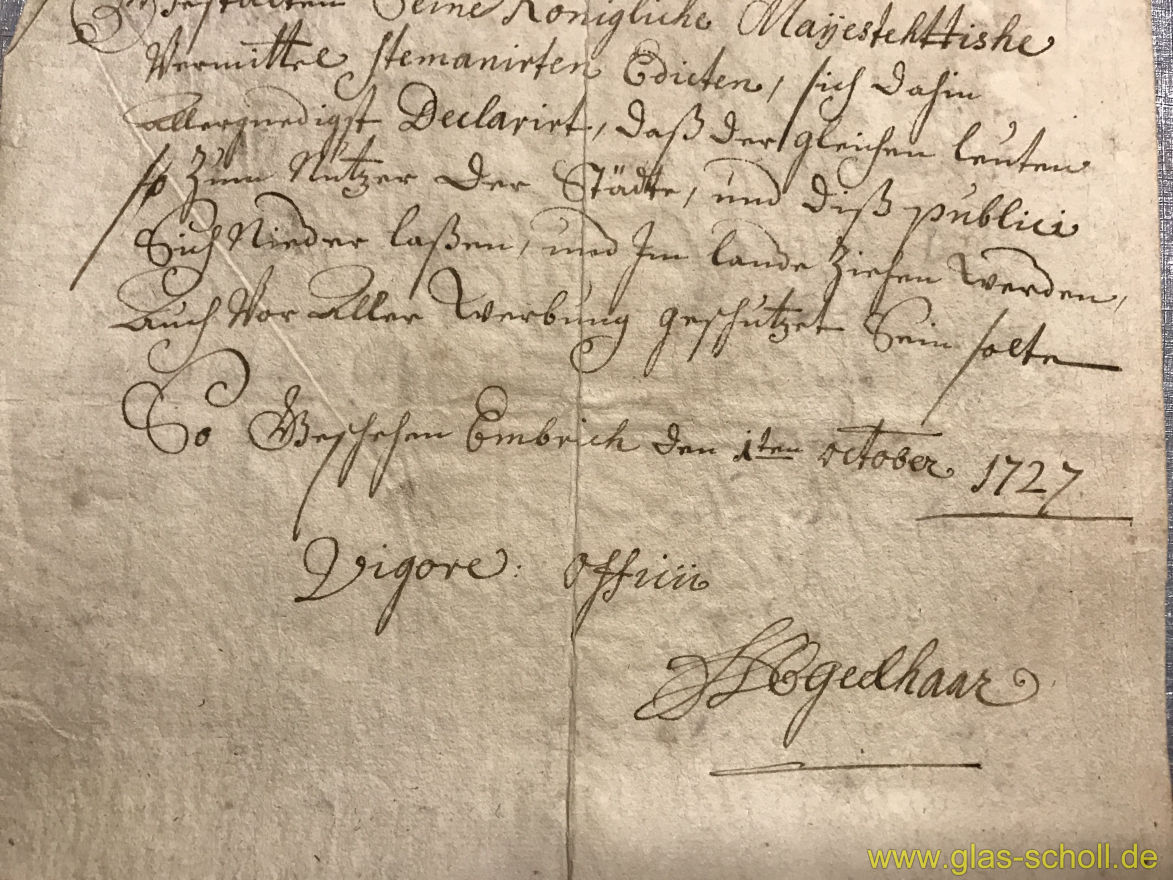 Gestalten Seine Königliche Mayestehttishe
Vermittel stemanirten Edicten, sich dahin
Allergnedigst Declarirt, daß der gleichen leuten
so Zum Nutzen der Städte, und diß publici
Sich Nieder laßen, und Im lande Ziehen werden,
Auch Vor Aller Werbung geschützet Sein solte
So Geschehen Embrich den 1ten october 1727
Vigore: officii
www.glas-scholl.de